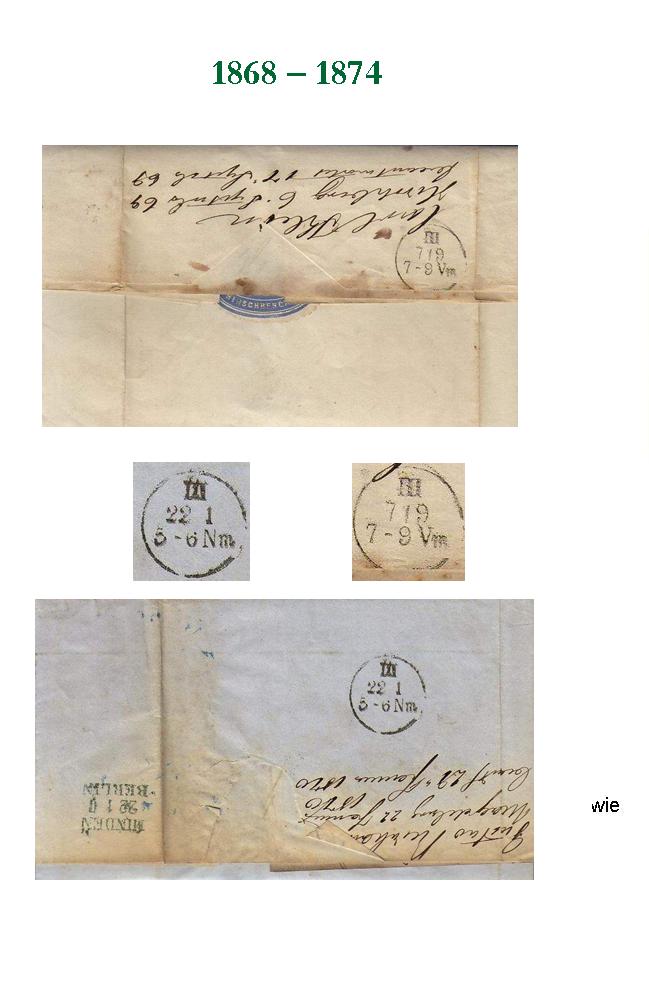 1868 – 1874
Carl Klein
Hirschberg 6 Septmbr 69
17 Septbr 69
III
7/9
7-9 Vm
III
22 1
5-6 Nm
III
7/9
7-9 Vm
III
22 1
5-6 Nm
MINDEN
22 1 II
BERLIN
Gustav
Magdeburg 22 Januar
1870
22 Januar 1870
wie